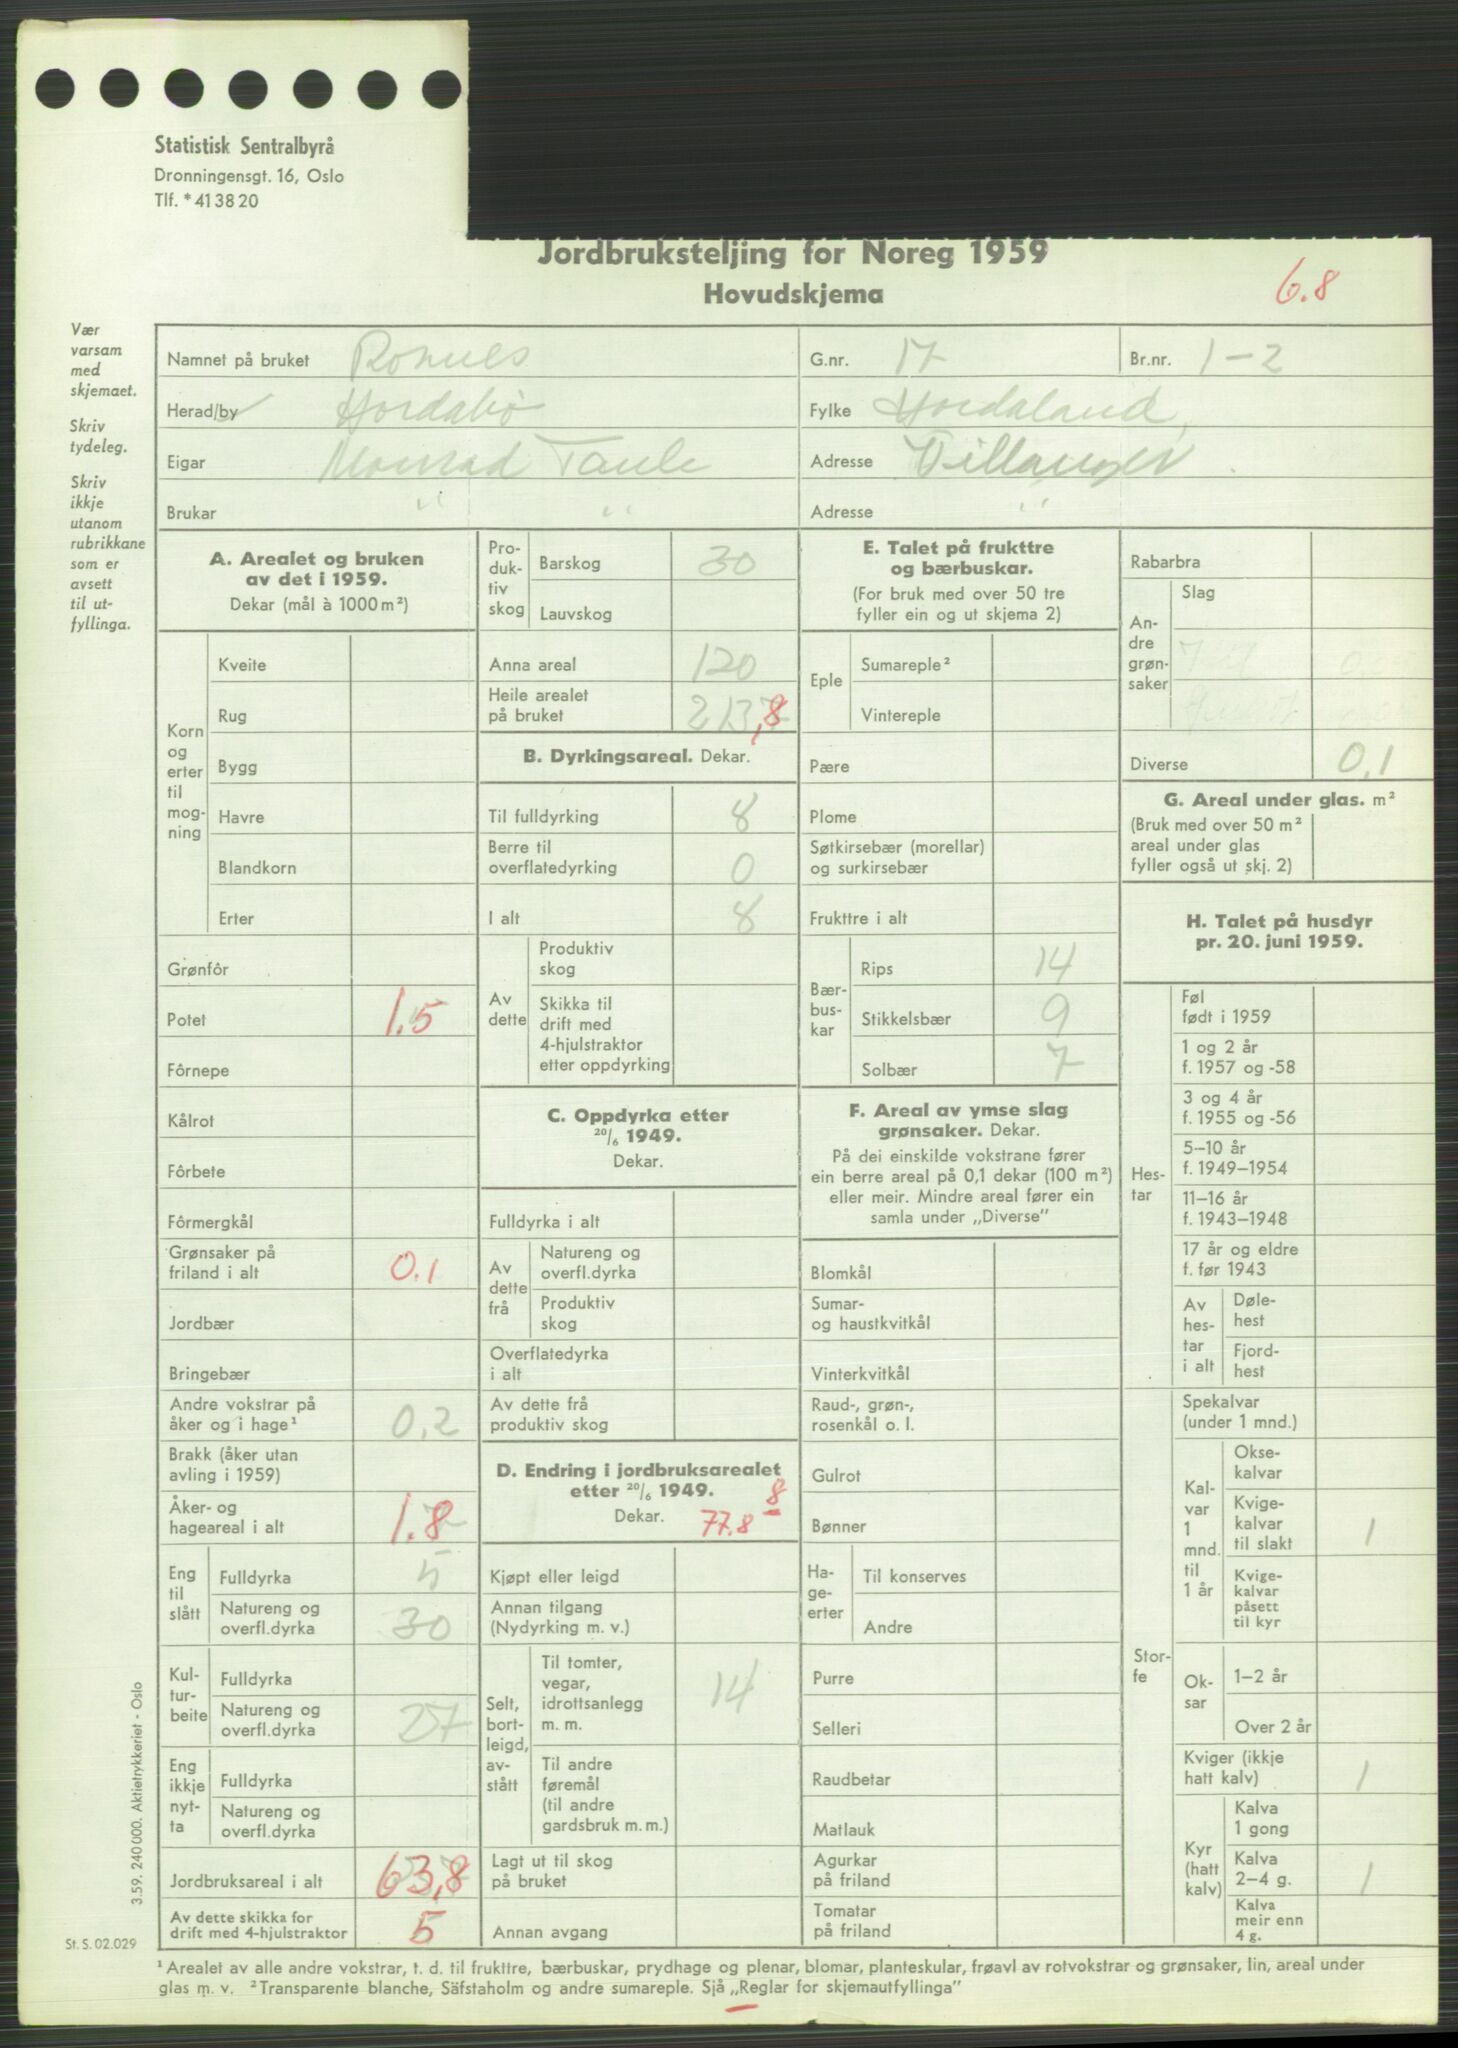 Statistisk Sentralbyrå
Dronningensgt. 16, Oslo
Tlf. * 41 38 20
Jordbruksteljing for Noreg 1959
Hovudskjema
6.8
Vær
varsam
med
skjemaet.
Skriv
tydeleg.
Skriv
ikkje
utanom
rubrikkane
som er
avsett
til ut-
fyllinga.
Namnet på bruket
G.nr. 17
Br.nr. 1-2
Herad/by Hordabø
Fylke Hordaland,
Eigar Monrad Taule
Adresse
Brukar " "
Adresse " 
A. Arealet og bruken
av det i 1959.
Dekar (mål à 1000 m²)
Korn
og
erter
til
mog-
ning
Kveite
Rug
Bygg
Havre
Blandkorn
Erter
Grønfôr
Potet 1.5
Fôrnepe
Kålrot
Fôrbete
Fôrmergkål
Grønsaker på
friland i alt 0.1
Jordbær
Bringebær
Andre vokstrar på
åker og i hage¹ 0,2
Brakk (åker utan
avling i 1959)
Åker- og
hageareal i alt 1.8
Eng
til
slått
Fulldyrka 5
Natureng og
overfl.dyrka 30
Kul-
tur-
beite
Fulldyrka
Natureng og
overfl.dyrka 27
Eng
ikkje
nyt-
ta
Fulldyrka
Natureng og
overfl.dyrka
Jordbruksareal i alt 63,8
Av dette skikka for
drift med 4-hjulstraktor 5
Pro-
duk-
tiv
skog
Barskog 30
Lauvskog
Anna areal 120
Heile arealet
på bruket 213,8
B. Dyrkingsareal. Dekar.
Til fulldyrking 8
Berre til
overflatedyrking 0
I alt 8
Av
dette
Produktiv
skog
Skikka til
drift med
4-hjulstraktor
etter oppdyrking
C. Oppdyrka etter
20/6 1949.
Dekar.
Fulldyrka i alt
Av
dette
frå
Natureng og
overfl.dyrka
Produktiv
skog
Overflatedyrka
i alt
Av dette frå
produktiv skog
D. Endring i jordbruksarealet
etter 20/6 1949.
Dekar. 77.8
8
Kjøpt eller leigd
Annan tilgang
(Nydyrking m. v.)
Selt,
bort-
leigd,
av-
stått
Til tomter,
vegar,
idrottsanlegg
m. m. 14
Til andre
føremål
(til andre
gardsbruk m. m.)
Lagt ut til skog
på bruket
Annan avgang
E. Talet på frukttre
og bærbuskar.
(For bruk med over 50 tre
fyller ein og ut skjema 2)
Eple
Sumareple²
Vintereple
Pære
Plome
Søtkirsebær (morellar)
og surkirsebær
Frukttre i alt
Bær-
bus-
kar
Rips 14
Stikkelsbær 9
Solbær 7
F. Areal av ymse slag
grønsaker. Dekar.
På dei einskilde vokstrane fører
ein berre areal på 0,1 dekar (100 m²)
eller meir. Mindre areal fører ein
samla under „Diverse”
Blomkål
Sumar-
og haustkvitkål
Vinterkvitkål
Raud-, grøn-,
rosenkål o. l.
Gulrot
Bønner
Ha-
ge-
erter
Til konserves
Andre
Purre
Selleri
Raudbetar
Matlauk
Agurkar
på friland
Tomatar
på friland
Rabarbra
An-
dre
grøn-
saker
Slag
Diverse 0,1
G. Areal under glas. m²
(Bruk med over 50 m²
areal under glas
fyller også ut skj. 2)
H. Talet på husdyr
pr. 20. juni 1959.
Hes-
tar
Føl
født i 1959
1 og 2 år
f. 1957 og -58
3 og 4 år
f. 1955 og -56
5–10 år
f. 1949–1954
11–16 år
f. 1943–1948
17 år og eldre
f. før 1943
Av
hes-
tar
i alt
Døle-
hest
Fjord-
hest
Stor-
fe
Spekalvar
(under 1 mnd.)
Kal-
var
1
mnd.
til
1 år
Okse-
kalvar
Kvige-
kalvar
til slakt 1
Kvige-
kalvar
påsett
til kyr
Ok-
sar
1–2 år
Over 2 år
Kviger (ikkje
hatt kalv) 1
Kyr
(hatt
kalv)
Kalva
1 gong
Kalva
2–4 g. 1
Kalva
meir enn
4 g.
3.59. 240 000. Aktietrykkeriet - Oslo
St. S. 02.029
¹ Arealet av alle andre vokstrar, t. d. til frukttre, bærbuskar, prydhage og plenar, blomar, planteskular, frøavl av rotvokstrar og grønsaker, lin, areal under
glas m. v. ² Transparente blanche, Säfstaholm og andre sumareple. Sjå „Reglar for skjemautfyllinga”